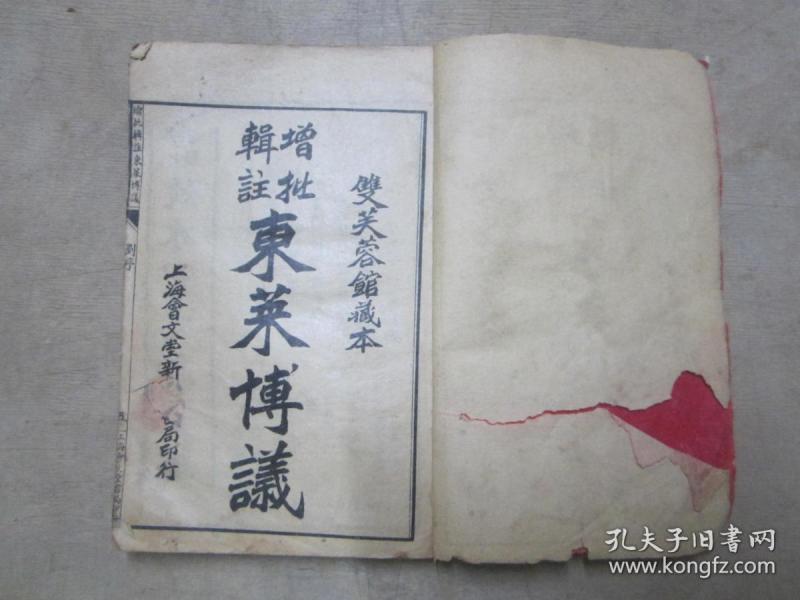 雙芙蓉館藏本
增批
輯註
東萊博議
上海會文堂新
局印行
孔夫子旧书网
www.kongfz.com